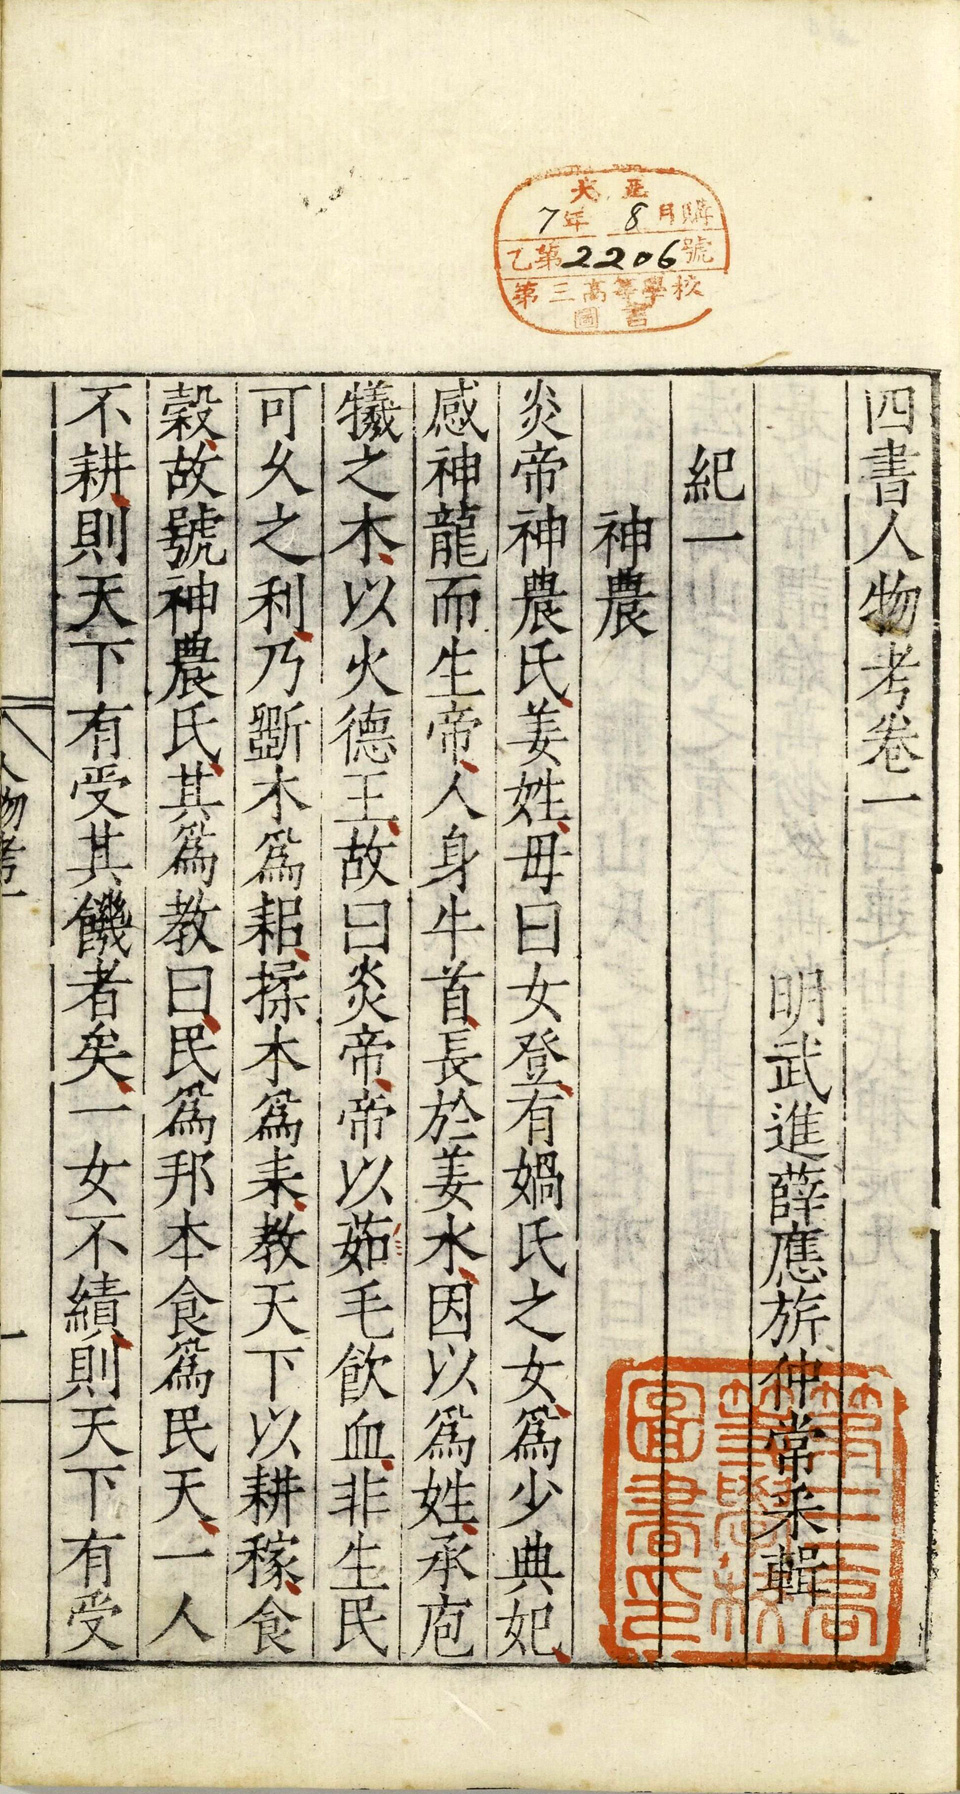 大正
7年 8月購
乙第2206號
第三高等學校
圖書
四書人物考卷一
明武進薛應旂仲常采輯
紀一
神農
炎帝神農氏姜姓母曰女登有媧氏之女爲少典妃
感神龍而生帝人身牛首長於姜水因以爲姓承庖
犧之木以火德王故曰炎帝帝以茹毛飲血非生民
可久之利乃斵木爲耜揉木爲耒教天下以耕稼食
穀故號神農氏其爲教曰民爲邦本食爲民天一人
不耕則天下有受其饑者矣一女不績則天下有受
人物考一
一
第三高
等學校
圖書印